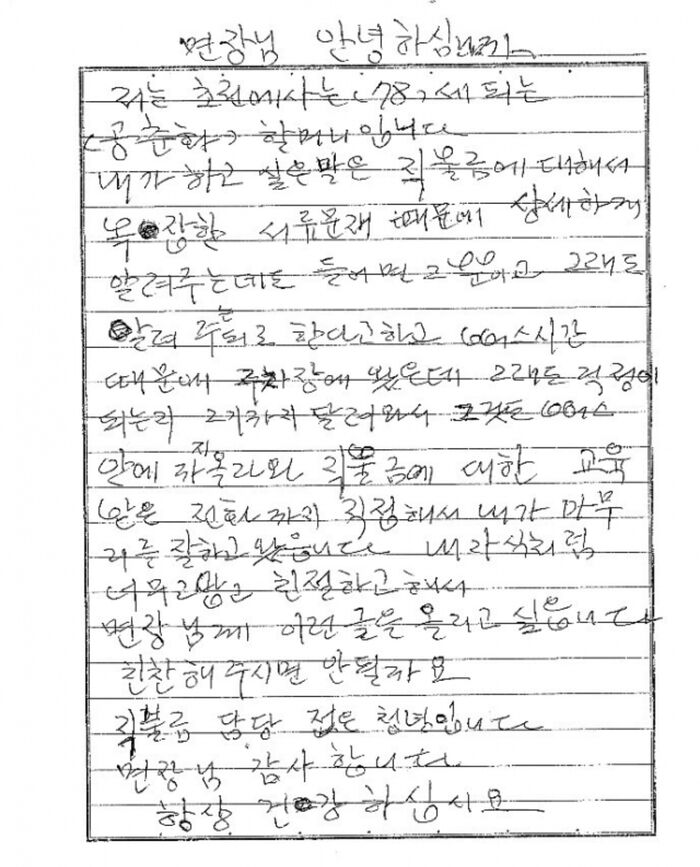 면장님 안녕하심니까
저는 초전에사는(78)세 되는
(공춘화) 할머니입니다
내가 하고 싶은말은 직불금에 대해서
복잡한 서류문재 때문에 상세하게
알려주는데도 들어면 그뿐이고 그래도
알려 주는되로 한다고하고 뻐스시간
때문에 주차장에 왔은데 그래도 걱정이
되는지 거기까지 달려와서 그것도 뻐스
안에 까지 올라와 직불금에 대한 교육
받은 전화까지 직접해서 내가 마무
리를 잘하고 왔읍니다 내자식처럼
너무고맙고 친절하고해서
면장님께 이런 글은 올리고 싶읍니다
친찬해주시면 안될까요
직불금 담당 젊은 청년입니다
면장님 감사합니다
항상 건강하십시요